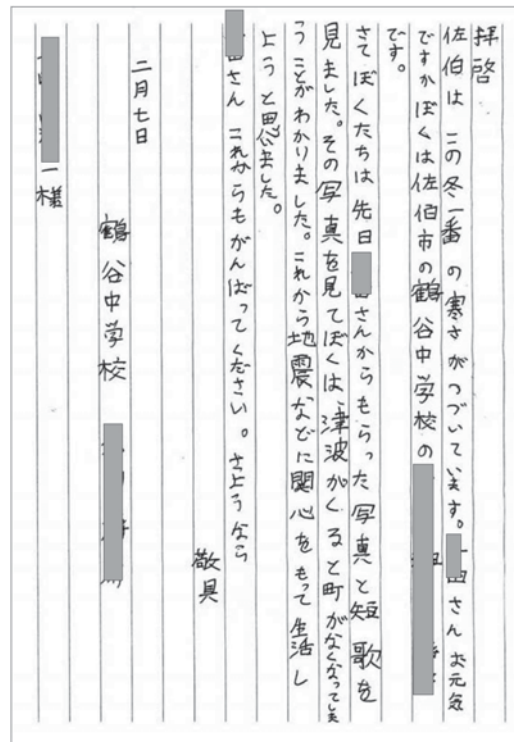 拝啓
佐伯は この冬一番の寒さがつづいています。田さんお元気
ですかぼくは佐伯市の鶴谷中学校の
です。
さてぼくたちは先日さんからもらった写真と短歌を
見ました。その写真を見てぼくは、津波がくると町がなくなってしま
うことがわかりました。これから地震などに関心をもって生活し
ようと思いました。
さん これからもがんばってください。さようなら
敬具
二月七日
鶴谷中学校
一様